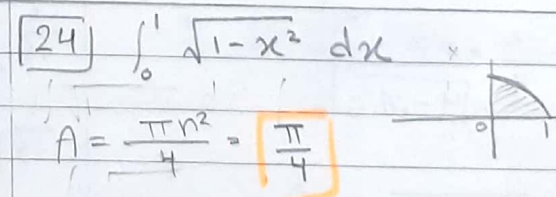 24 ∫₀¹ √(1-x²) dx
A = πr²/4 = π/4
0 1